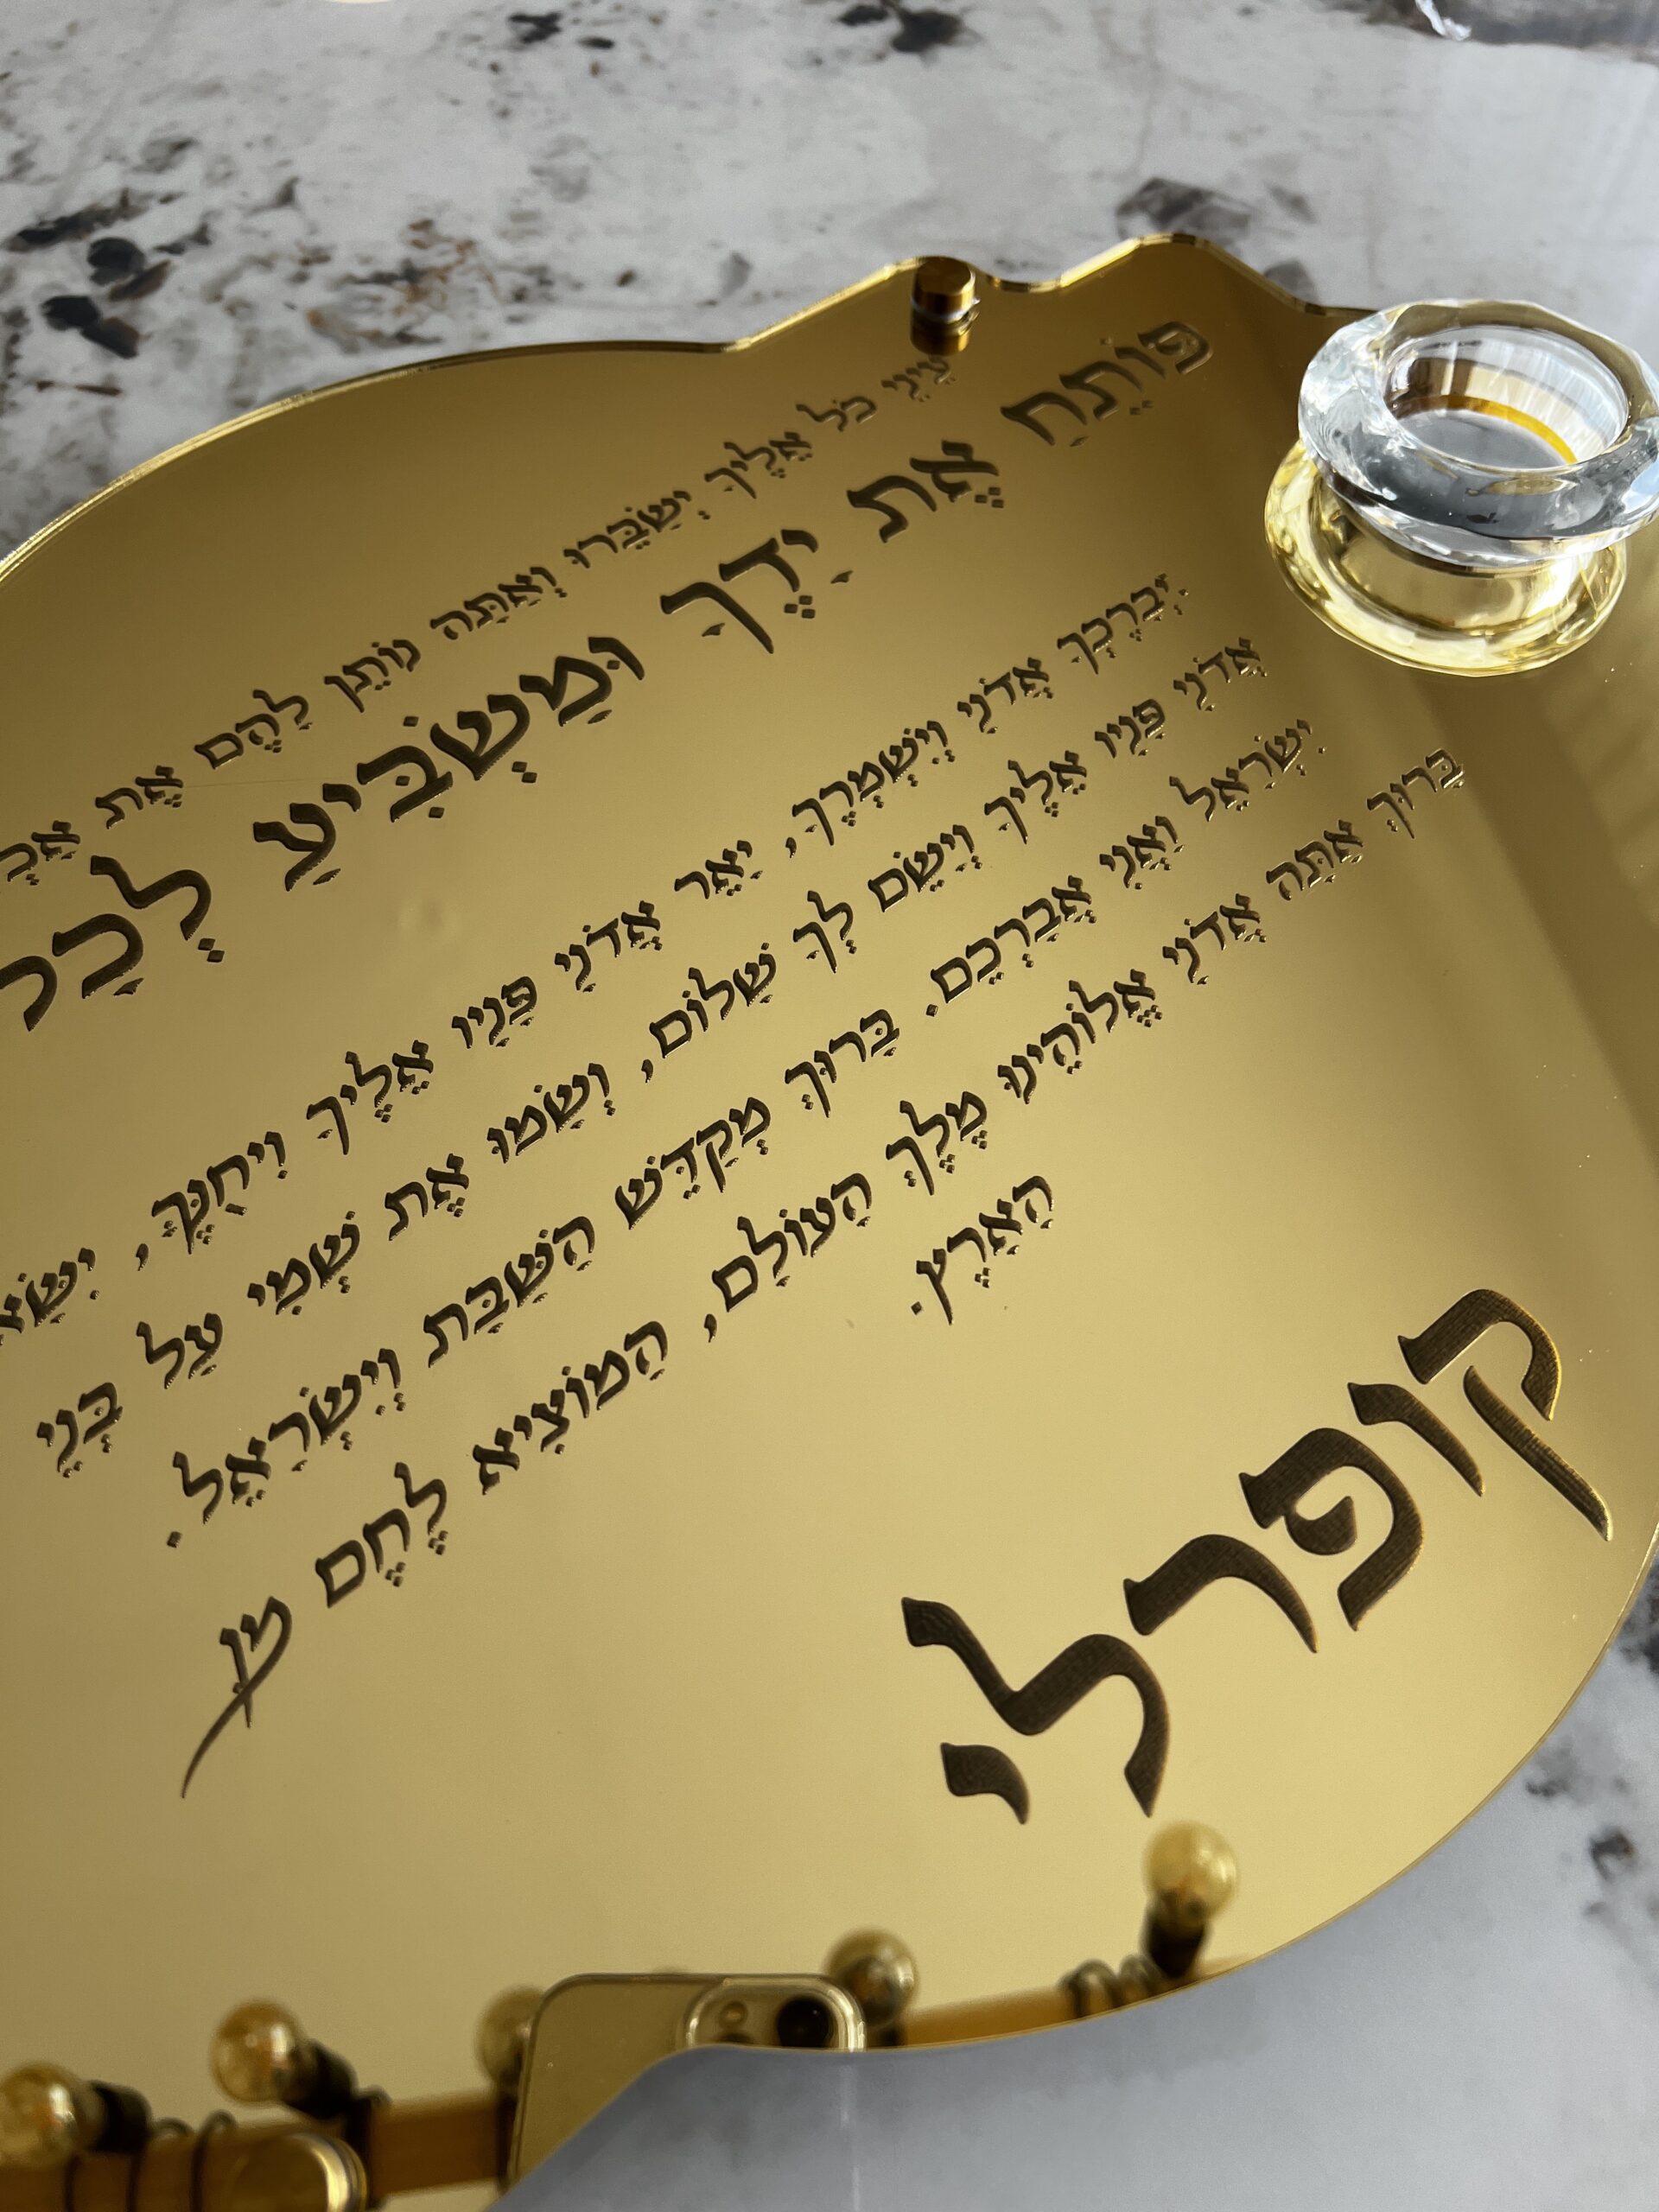 עֵינֵי כֹל אֵלֶיךָ יְשַׂבֵּרוּ וְאַתָּה נוֹתֵן לָהֶם אֶת
פּוֹתֵחַ אֶת יָדֶךָ וּמַשְׂבִּיעַ לְכָל
יְבָרֶכְךָ אֲדֹנָי וְיִשְׁמְרֶךָ, יָאֵר אֲדֹנָי פָּנָיו אֵלֶיךָ וִיחֻנֶּךָּ, יִשָּׂא
אֲדֹנָי פָּנָיו אֵלֶיךָ וְיָשֵׂם לְךָ שָׁלוֹם, וְשָׂמוּ אֶת שְׁמִי עַל בְּנֵי
יִשְׂרָאֵל וַאֲנִי אֲבָרְכֵם. בָּרוּךְ מְקַדֵּשׁ הַשַּׁבָּת וְיִשְׂרָאֵל.
בָּרוּךְ אַתָּה אֲדֹנָי אֱלוֹהֵינוּ מֶלֶךְ הָעוֹלָם, הַמּוֹצִיא לֶחֶם מִן
הָאָרֶץ.
קופרלי